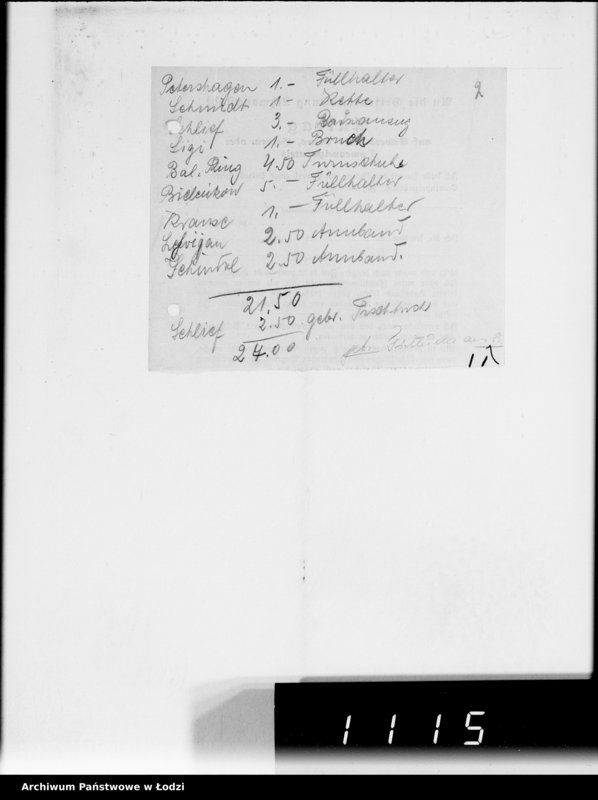 2
Petershagen 1.- Füllhalter
Schmidt 1- Kette
Schlief 3.-
Ligi 1.- Bruch
Bal. Ring 4.50 Turnschuhe
5.- Füllhalter
Krause 1.- Füllhalter
2.50 Armband
Schindel 2.50 Armband.
21,50
Schlief 2.50 gebr. Tischtuch
24.00
gebr.
1115
Archiwum Państwowe w Łodzi